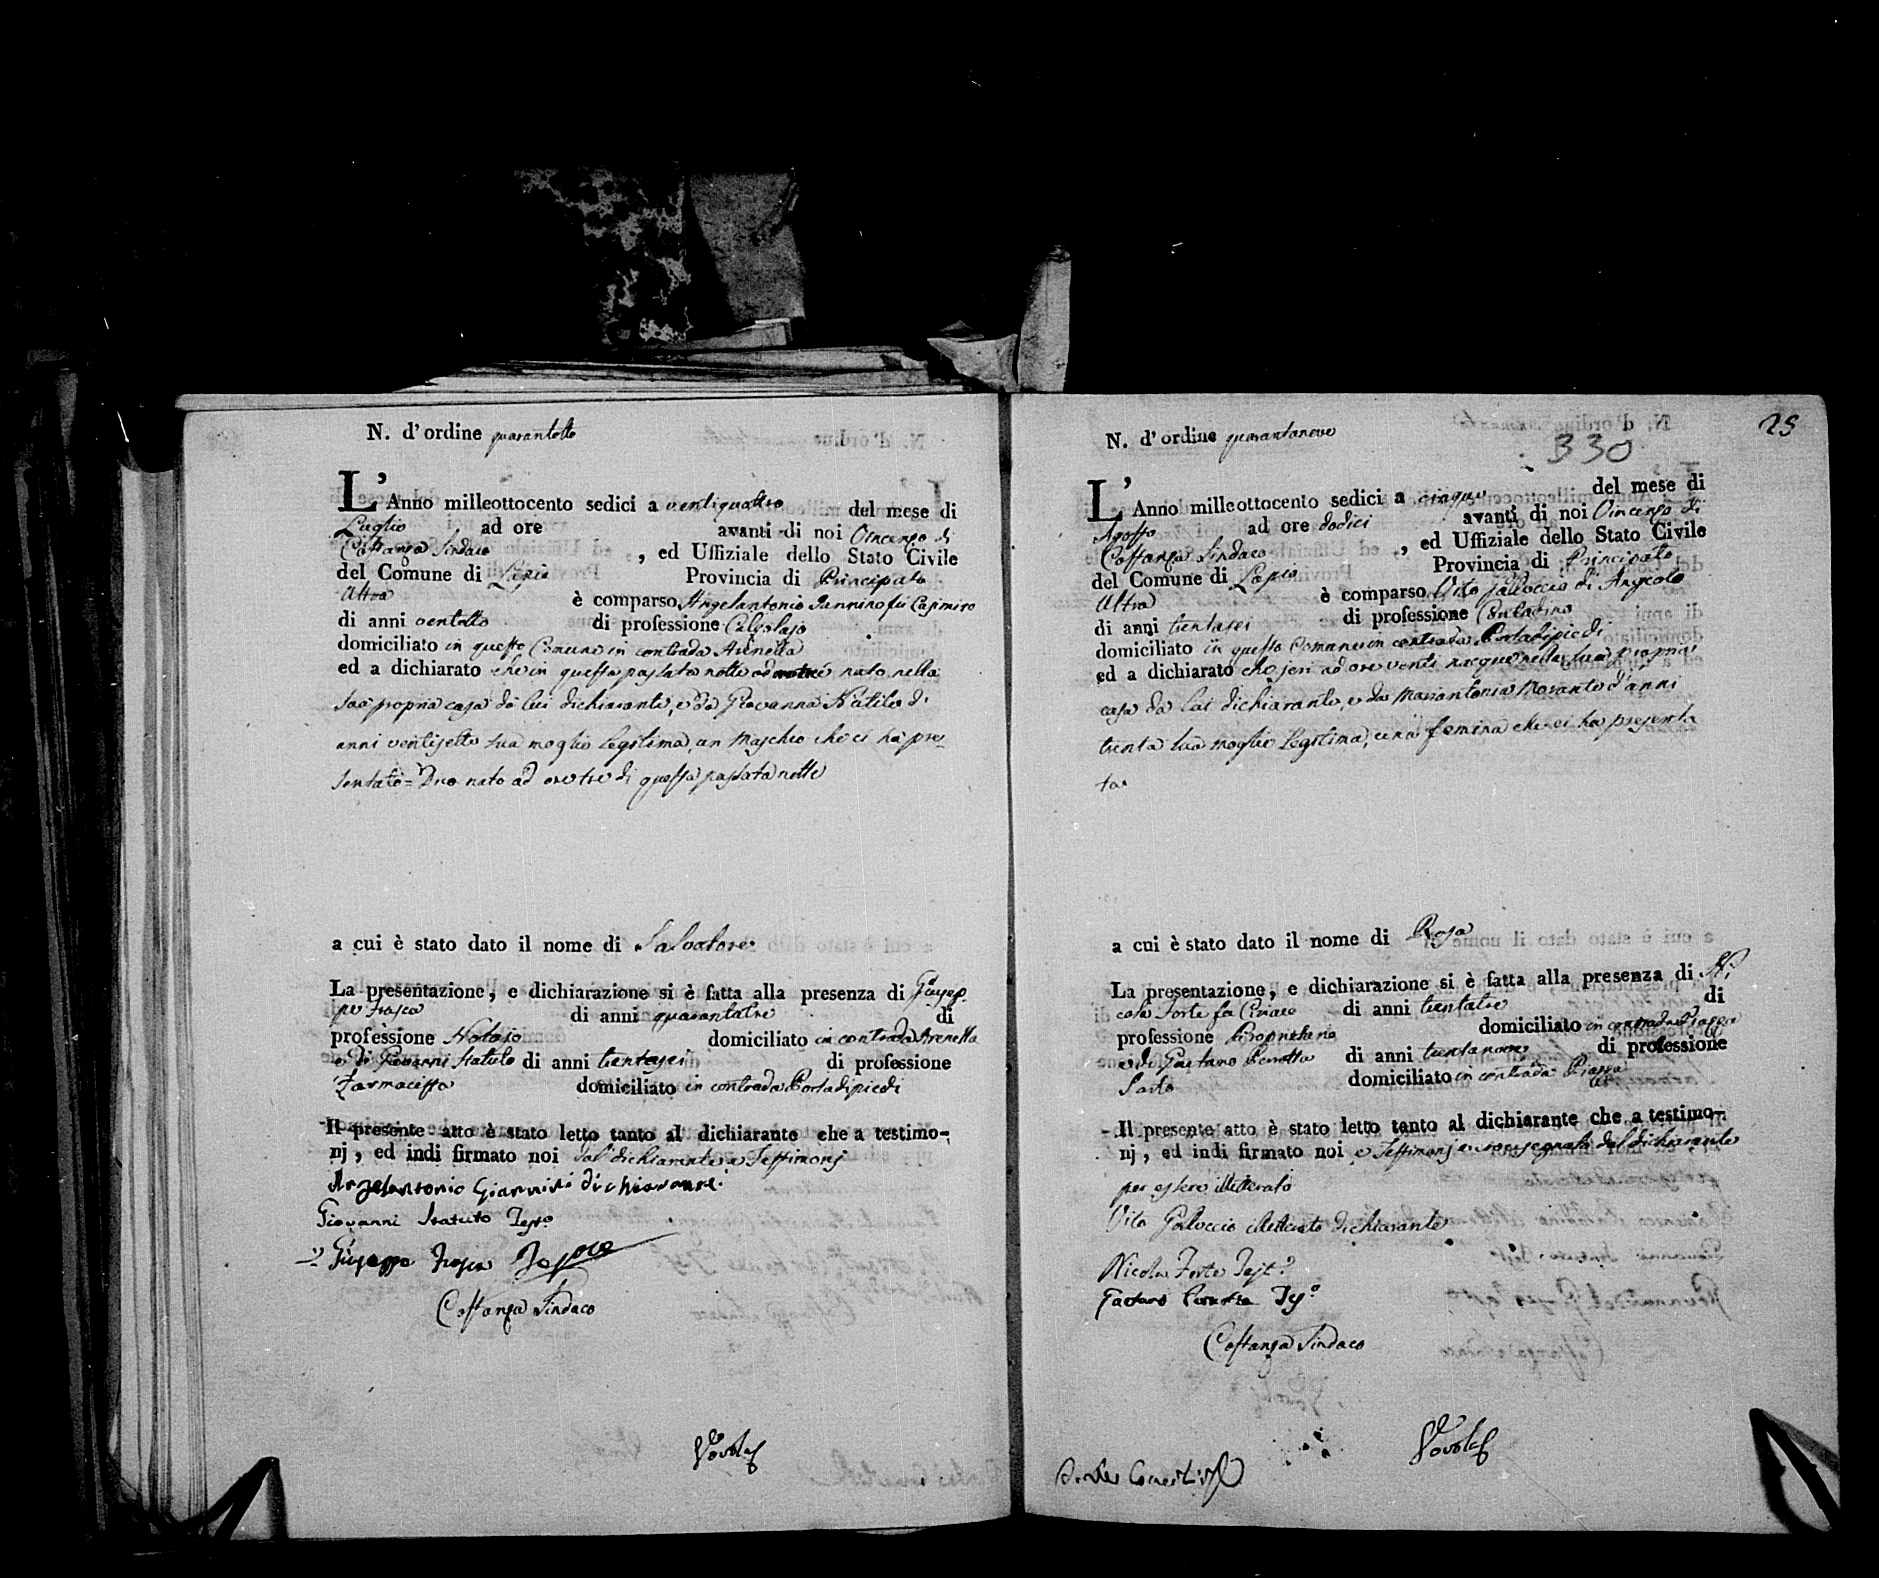 N. d'ordine quarantotto
L'Anno milleottocento sedici a ventiquattro del mese di
Luglio ad ore avanti di noi Vincenzo di
Costanza Sindaco , ed Uffiziale dello Stato Civile
del Comune di Lapio Provincia di Principato
Ultra è comparso Angelantonio Iannino fu Casimiro
di anni ventotto di professione Calzolajo
domiciliato in questo Comune in contrada Arenella
ed a dichiarato che in questa passata notte è nato nella
sua propria casa da lui dichiarante, e da Giovanna di
anni ventisette sua moglie legitima, un Maschio che ci ha pre-
sentato = Dico nato ad ore tre di questa passata notte
a cui è stato dato il nome di Salvatore
La presentazione, e dichiarazione si è fatta alla presenza di Giusep-
pe Frasca di anni quarantatre di
professione Notajo domiciliato in contrada Arenella
e di Giovanni Statuto di anni trentasei di professione
Farmacista domiciliato in contrada Portadipiedi
Il presente atto è stato letto tanto al dichiarante che a testimo-
nj, ed indi firmato noi dal dichiarante e Testimonj
Angelantonio Giannini dichiarante
Giovanni Statuto Testo
Giuseppe Frasca
Costanza Sindaco
N. d'ordine quarantanove
25
330
L'Anno milleottocento sedici a cinque del mese di
Agosto ad ore dodici avanti di noi Vincenzo di
Costanza Sindaco , ed Uffiziale dello Stato Civile
del Comune di Lapio Provincia di Principato
Ultra è comparso Vito Galluccio di Angelo
di anni trentasei di professione Contadino
domiciliato in questo Comune in contrada Portadipiedi
ed a dichiarato che jeri ad ore venti nacque nella sua propria
casa da lui dichiarante, e da Mariantonia Morante d'anni
trenta sua moglie legitima, una femina che ci ha presenta
ta
a cui è stato dato il nome di Rosa
La presentazione, e dichiarazione si è fatta alla presenza di Ni
cola Forte fu Ciriaco di anni trentatre di
professione Proprietario domiciliato in contrada Piazza
e di Gaetano di anni trentanove di professione
Sarto domiciliato in contrada Piazza
Il presente atto è stato letto tanto al dichiarante che a testimo-
nj, ed indi firmato noi e Testimonj e non segnato dal dichiarante
per essere illetterato
Vito Galluccio illetterato dichiarante
Nicola Forte Test.o
Gaetano
Costanza Sindaco